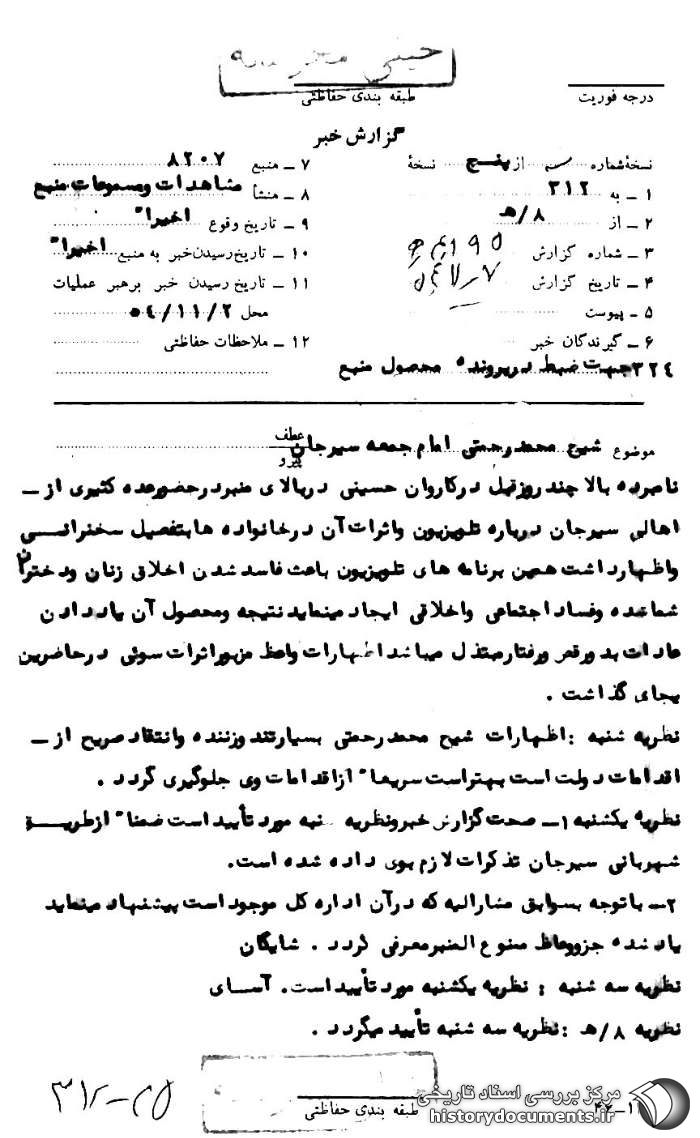 خیلی محرمانه
درجه فوریت
طبقه بندی حفاظتی
گزارش خبر
نسخهٔ شماره از پنج نسخهٔ
۱ ـ به ۳۱۲
۲ ـ از ۸/ﻫ
۳ ـ شماره گزارش
۴ ـ تاریخ گزارش
۵ ـ پیوست
۶ ـ گیرندگان خبر
۷ ـ منبع ۸۲۰۷
۸ ـ منشأ مشاهدات ومسموعات منبع
۹ ـ تاریخ وقوع اخیراً
۱۰ ـ تاریخ رسیدن خبر به منبع اخیراً
۱۱ ـ تاریخ رسیدن خبر برهبر عملیات
محل ۵۴/۱۱/۲
۱۲ ـ ملاحظات حفاظتی
۳۲۴ جهت ضبط درپرونده محصول منبع
موضوع شیخ محمدرحمتی امام جمعه سیرجان
عطف
پیرو
نامبرده بالا چند روزقبل درکاروان حسینی دربالای منبردرحضورعده کثیری از ـ
اهالی سیرجان درباره تلویزیون واثرات آن درخانواده ها بتفصیل سخنرانی
واظهارداشت همین برنامه های تلویزیون باعث فاسد شدن اخلاق زنان ودختران
شما شده وفساد اجتماعی واخلاقی ایجاد مینماید نتیجه ومحصول آن یاددادن
عادات بد ورقص ورفتارمبتذل میباشد اظهارات واعظ مزبوراثرات سوئی درحاضرین
بجای گذاشت .
نظریه شنبه : اظهارات شیخ محمدرحمتی بسیارتندوزننده وانتقاد صریح از ـ
اقدامات دولت است بهتراست سریعاً ازاقدامات وی جلوگیری گردد .
نظریه یکشنبه ۱ـ صحت گزارش خبرونظریه شنبه مورد تأیید است ضمناً ازطریق
شهربانی سیرجان تذکرات لازم بوی داده شده است.
۲ـ باتوجه بسوابق مشارالیه که درآن اداره کل موجود است پیشنهاد مینماید
یاد شده جزووعاظ ممنوع المنبرمعرفی گردد . شایگان
نظریه سه شنبه : نظریه یکشنبه مورد تأیید است. آسای
نظریه ۸/ﻫ : نظریه سه شنبه تأیید میگردد .
طبقه بندی حفاظتی
مرکز بررسی اسناد تاریخی
historydocuments.ir